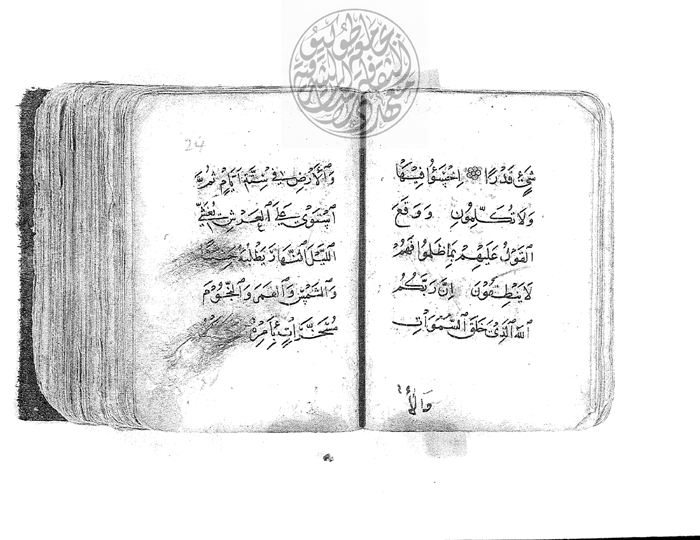 شَيْءٍ قَدْرًا اخْسَؤُا فِيهَا
وَلَا تُكَلِّمُونِ وَوَقَعَ
القَوْلُ عَلَيْهِمْ بِمَا ظَلَمُوا فَهُمْ
لَا يَنْطِقُونَ اِنَّ رَبَّكُمُ
اللهُ الَّذِي خَلَقَ السَّمٰوَاتِ
وَالأ
24
وَالْاَرْضَ فِي سِتَّةِ اَيَّامٍ ثُمَّ
اسْتَوٰى عَلَى الْعَرْشِ يُغْشِي
اللَّيْلَ النَّهَارَ يَطْلُبُهُ حَثِيثًا
وَالشَّمْسَ وَالْقَمَرَ وَالنُّجُومَ
مُسَخَّرَاتٍ بِاَمْرِهِ